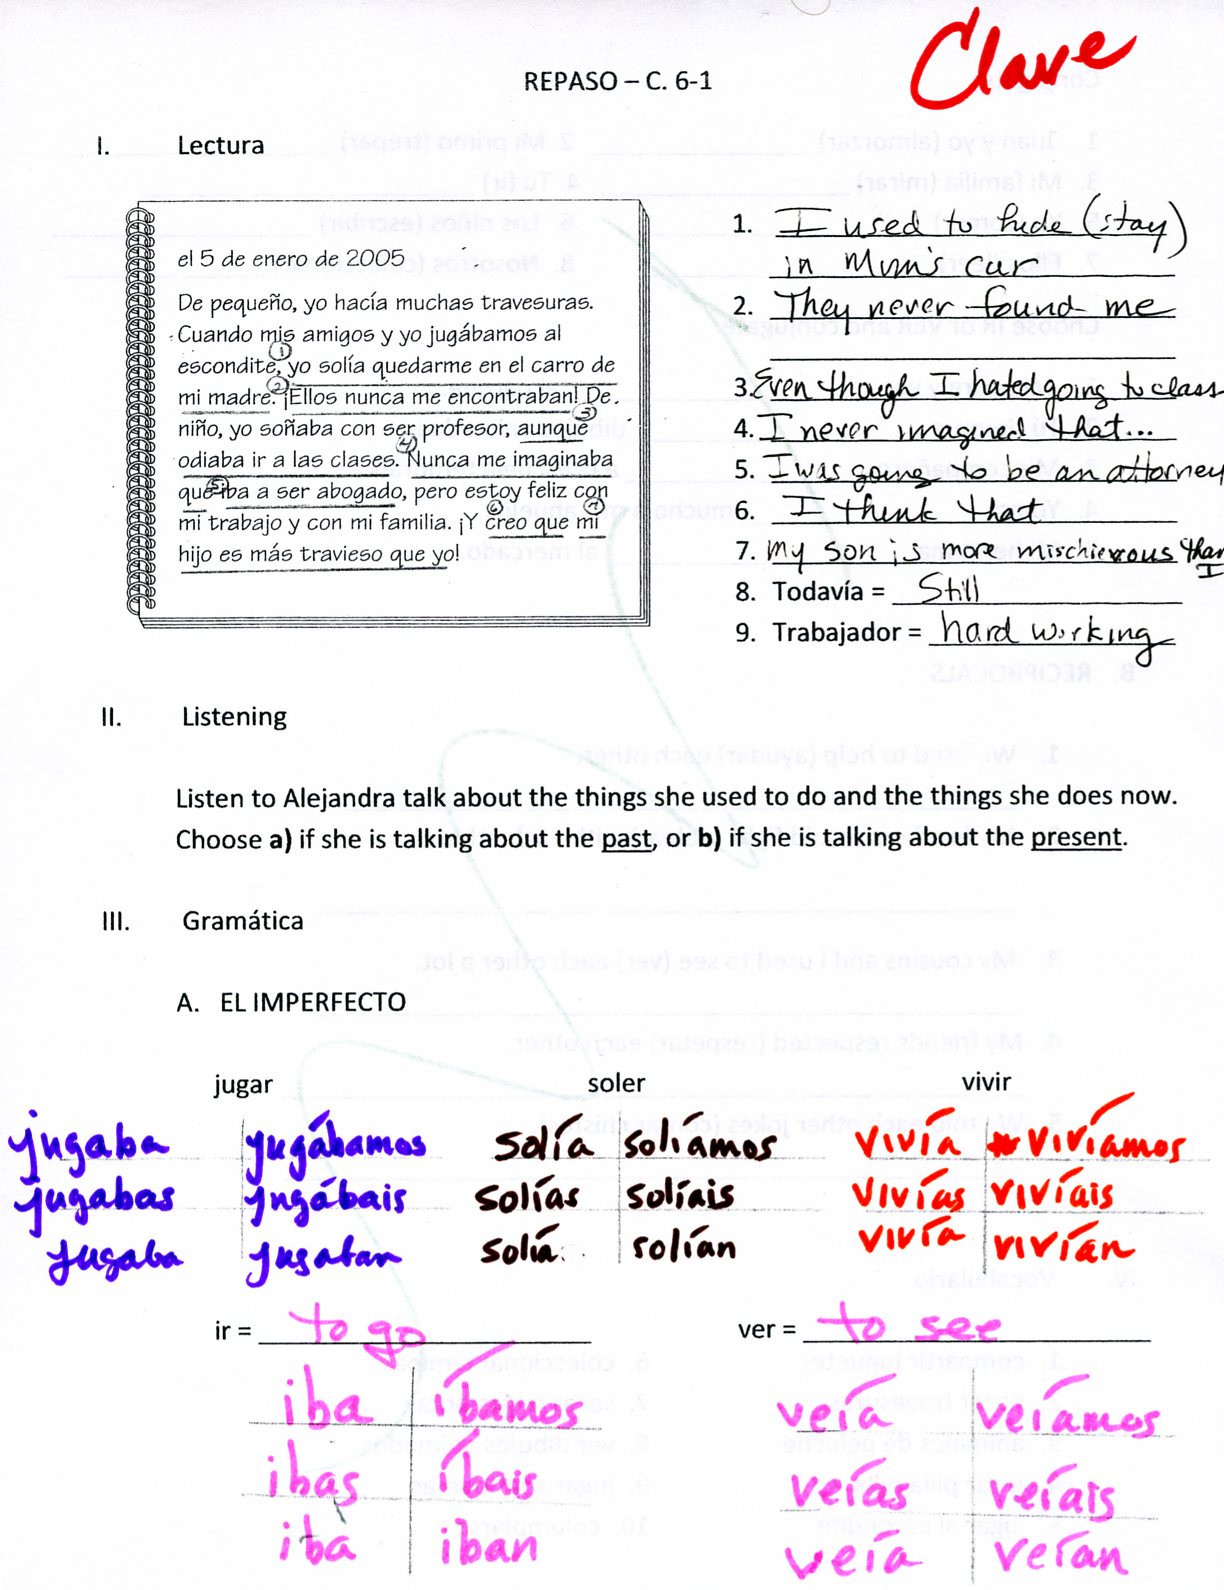 Clave
REPASO – C. 6-1
I. Lectura
el 5 de enero de 2005
De pequeño, yo hacía muchas travesuras.
Cuando mis amigos y yo jugábamos al
escondite, yo solía quedarme en el carro de
mi madre. ¡Ellos nunca me encontraban! De
niño, yo soñaba con ser profesor, aunque
odiaba ir a las clases. Nunca me imaginaba
que iba a ser abogado, pero estoy feliz con
mi trabajo y con mi familia. ¡Y creo que mi
hijo es más travieso que yo!
1. I used to hide (stay)
in Mom's car
2. They never found me
3. Even though I hated going to class
4. I never imagined that...
5. I was going to be an attorney
6. I think that
7. My son is more mischievous than
I
8. Todavía = Still
9. Trabajador = hard working
II. Listening
Listen to Alejandra talk about the things she used to do and the things she does now.
Choose a) if she is talking about the past, or b) if she is talking about the present.
III. Gramática
A. EL IMPERFECTO
jugar soler vivir
jugaba jugábamos solía solíamos vivía vivíamos
jugabas jugábais solías solíais vivías vivíais
jugaba jugaban solía solían vivía vivían
ir = to go ver = to see
iba íbamos veía veíamos
ibas íbais veías veíais
iba iban veía veían